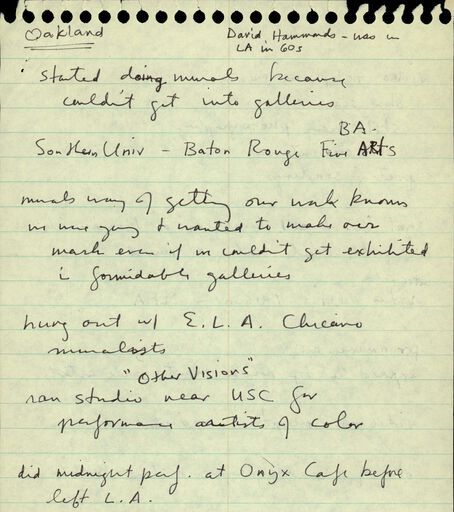 Oakland
David Hammonds - was in
LA in 60s
started doing murals because
couldn't get into galleries
BA.
Southern Univ - Baton Rouge Fine ARts
murals way of getting our work known
we were young & wanted to make our
mark even if we couldn't get exhibited
i formidable galleries
hung out w/ E.L.A. Chicano
muralists
"Other Visions"
ran studio near USC for
performance artists of color
did midnight perf. at Onyx Cafe before
left L.A.